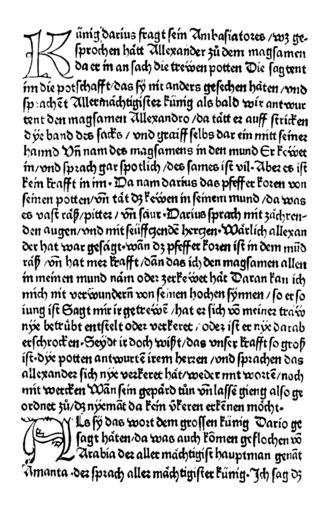 Künig darius fragt sein Ambasiatores / wz ge-
sprochen hått Allexander zů dem magsamen
da er in an sach die trewen potten Die sagtent
im die potschafft / das sÿ nit anders gesechen håten / vnd
sprachēt Allermåchtigister künig als bald wir antwur
tent den magsamen Allexandro / da tått er auff stricken
dye band des sacks / vnd graiff selbs dar ein mitt seiner
hannd Vn̄ nam des magsamens in den mund Er kewet
in / vnd sprach gar spotlich / des sames ist vil · Aber es ist
kein krafft in im · Da nam darius das pfeffer koren von
seinen potten / vn̄ tåt dz kewen in seinem mund / da was
es vast råß / pitter / vn̄ saur · Darius sprach mit zåchren-
den augen / vnd mit seüffczenden herczen · Wårlich allexan
der hat war gesågt · wān dz pfeffer koren ist in dem mūd
råß / vn̄ hat mer krafft / dān das ich den magsamen allen
in meinen mund nåm oder zerkewet håt Daran kan ich
mich nit verwundern̄ von seinen hochen sÿnnen / so er so
iung ist Sagt mir ir getrewen / hat er sich vō meiner traw
nÿe betrübt entstelt oder verkeret / oder ist er nÿe darab
erschrocken · Seydt ir doch wißt / das vnser krafft so groß
ist · dÿe potten antwurten irem herren / vnd sprachen das
allexander sich nÿe verkeret håt / weder mit worten / noch
mit wercken Wān sein gepård tůn vn̄ lassē gieng also ge
ordnet zů / dz nÿemāt da kein ökeren erkēnen möcht ·
Als sÿ das wort dem grossen künig Dario ge
sagt håten / da was auch kōmen geflochen vō
Arabia der aller måchtigist hauptman genāt
Amanta · der sprach aller måchtigister künig · Ich sag dz